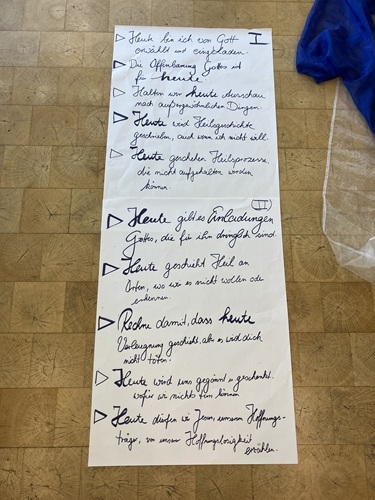 ▷ Heute bin ich von Gott I
erwählt und eingeladen.
▷ Die Offenbarung Gottes ist
für heute.
▷ Halten wir heute durchaus
nach außergewöhnlichen Dingen.
▷ Heute wird Heilsgeschichte
geschrieben, auch wenn ich nicht will.
▷ Heute geschehen Heilsprozesse,
die nicht aufgehalten werden
können.
II
▷ Heute gibt es Einladungen
Gottes, die für ihn dringlich sind.
▷ Heute geschieht Heil an
Orten, wo wir es nicht wollen oder
erkennen.
▷ Rechne damit, dass heute
Verleugnung geschieht, aber es wird dich
nicht töten.
▷ Heute wird uns gegönnt u. geschenkt,
wofür wir nichts tun können
▷ Heute dürfen wir Jesus, unserem Hoffnungs-
träger, von unserer Hoffnungslosigkeit
erzählen.